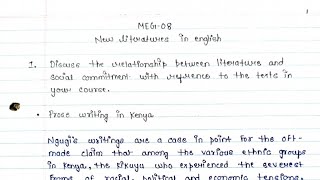 1
MEG-08
New literatures in english
1. Discuss the relationship between literature and
social commitment with reference to the texts in
your course.
• Prose writing in Kenya
Ngugi's writings are a case in point for the oft-
made claim that among the various ethnic groups
in Kenya, the Kikuyu who experienced the severest
forms of racial, political and economic tensions,